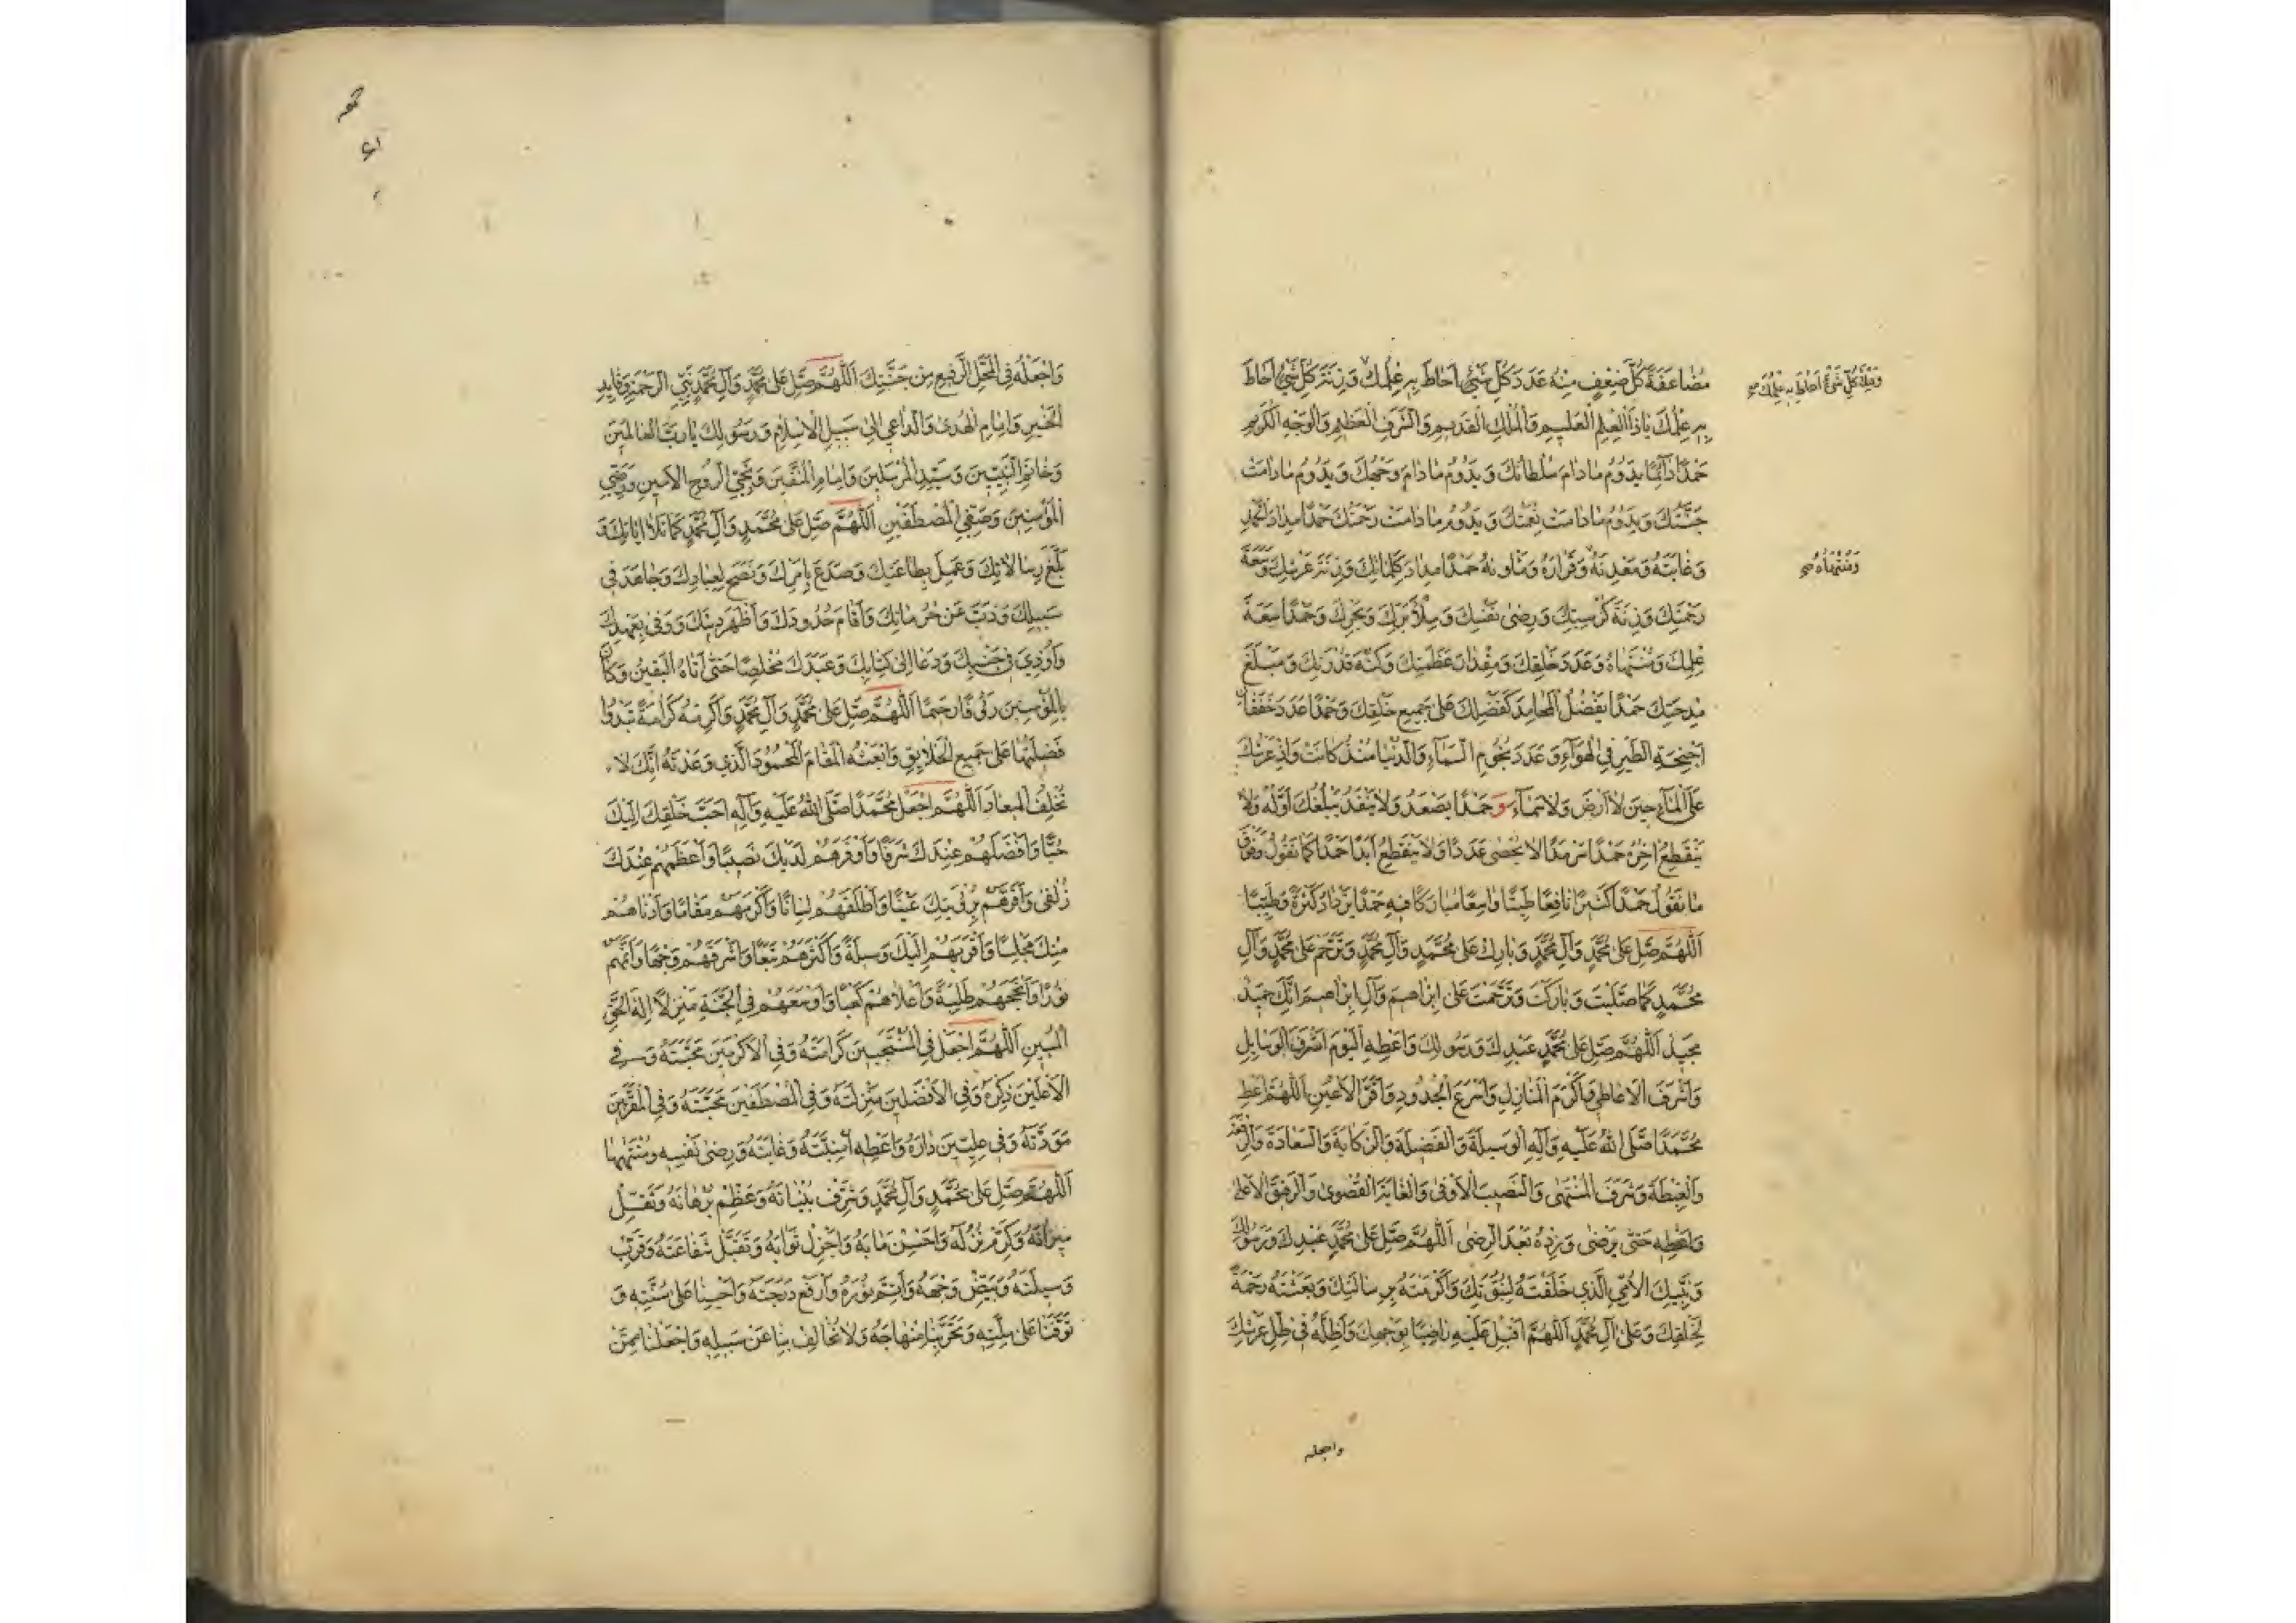 مُضَاعَفَةً كُلُّ ضِعْفٍ مِنْهُ عَدَدَ كُلِّ شَيْءٍ أَحَاطَ بِهِ عِلْمُكَ وَزِنَةَ كُلِّ شَيْءٍ أَحَاطَ
وَمِلْءَ كُلِّ شَيْءٍ أَحَاطَ بِهِ عِلْمُكَ
بِهِ عِلْمُكَ يَا ذَا الْعِلْمِ الْعَلِيمِ وَالْمُلْكِ الْقَدِيمِ وَالشَّرَفِ الْعَظِيمِ وَالْوَجْهِ الْكَرِيمِ
حَمْدًا دَائِمًا يَدُومُ مَا دَامَ سُلْطَانُكَ وَيَدُومُ مَا دَامَ وَجْهُكَ وَيَدُومُ مَا دَامَتْ
جَنَّتُكَ وَيَدُومُ مَا دَامَتْ نِعْمَتُكَ وَيَدُومُ مَا دَامَتْ رَحْمَتُكَ حَمْدًا مِدَادَ الْحَمْدِ
وَغَايَتَهُ وَمَعْدِنَهُ وَقَرَارَهُ وَمَأْوَنَهُ حَمْدًا مِدَادَ كَلِمَاتِكَ وَزِنَةَ عَرْشِكَ وَسَعَةَ
وَمُنْتَهَاهُ
رَحْمَتِكَ وَزِنَةَ كُرْسِيِّكَ وَرِضَى نَفْسِكَ وَمِلْأَ بَرِّكَ وَبَحْرِكَ وَحَمْدًا سَعَةَ
عِلْمِكَ وَمُنْتَهَاهُ وَعَدَدَ خَلْقِكَ وَمِقْدَارَ عَظَمَتِكَ وَكُنْهَ قُدْرَتِكَ وَمَبْلَغَ
مِدْحَتِكَ حَمْدًا يَفْضُلُ الْمَحَامِدَ كَفَضْلِكَ عَلَى جَمِيعِ خَلْقِكَ وَحَمْدًا عَدَدَ خَفَقَانِ
أَجْنِحَةِ الطَّيْرِ فِي الْهَوَاءِ وَعَدَدَ نُجُومِ السَّمَاءِ وَالدُّنْيَا مُنْذُ كَانَتْ وَإِذْ عَرْشُكَ
عَلَى الْمَاءِ حِينَ لَا أَرْضَ وَلَا سَمَاءَ وَحَمْدًا يَصْعَدُ وَلَا يَنْفَدُ يَبْلُغُكَ أَوَّلُهُ وَلَا
يَنْقَطِعُ آخِرُهُ حَمْدًا سَرْمَدًا لَا يُحْصَى عَدَدًا وَلَا يَنْقَطِعُ أَبَدًا حَمْدًا كَمَا نَقُولُ وَفَوْقَ
مَا نَقُولُ حَمْدًا كَثِيرًا نَافِعًا طَيِّبًا وَاسِعًا مُبَارَكًا فِيهِ حَمْدًا يَزْدَادُ كَثْرَةً وَطِيبًا
اللَّهُمَّ صَلِّ عَلَى مُحَمَّدٍ وَآلِ مُحَمَّدٍ وَبَارِكْ عَلَى مُحَمَّدٍ وَآلِ مُحَمَّدٍ وَتَرَحَّمْ عَلَى مُحَمَّدٍ وَآلِ
مُحَمَّدٍ كَمَا صَلَّيْتَ وَبَارَكْتَ وَتَرَحَّمْتَ عَلَى إِبْرَاهِيمَ وَآلِ إِبْرَاهِيمَ إِنَّكَ حَمِيدٌ
مَجِيدٌ اللَّهُمَّ صَلِّ عَلَى مُحَمَّدٍ عَبْدِكَ وَرَسُولِكَ وَأَعْطِهِ الْيَوْمَ أَشْرَفَ الْوَسَايِلِ
وَأَشْرَفَ الْأَعَاطِي وَأَكْرَمَ الْمَنَازِلِ وَأَسْرَعَ الْجُدُودِ وَأَقَرَّ الْأَعْيُنِ اللَّهُمَّ أَعْطِ
مُحَمَّدًا صَلَّى اللَّهُ عَلَيْهِ وَآلِهِ الْوَسِيلَةَ وَالْفَضِيلَةَ وَالزَّكَايَةَ وَالسَّعَادَةَ وَالرِّفْعَةَ
وَالْغِبْطَةَ وَشَرَفَ الْمُنْتَهَى وَالنَّصِيبَ الْأَوْفَى وَالْغَايَةَ الْقُصْوَى وَالرَّفِيقَ الْأَعْلَى
وَأَعْطِهِ حَتَّى يَرْضَى وَزِدْهُ بَعْدَ الرِّضَى اللَّهُمَّ صَلِّ عَلَى مُحَمَّدٍ عَبْدِكَ وَرَسُولِكَ
وَنَبِيِّكَ الْأُمِّيِّ الَّذِي خَلَقْتَهُ لِنُبُوَّتِكَ وَأَكْرَمْتَهُ بِرِسَالَتِكَ وَبَعَثْتَهُ رَحْمَةً
لِخَلْقِكَ وَعَلَى آلِ مُحَمَّدٍ اللَّهُمَّ أَقْبِلْ عَلَيْهِ رَاضِيًا بِوَجْهِكَ وَأَظِلَّهُ فِي ظِلِّ عَرْشِكَ
واجعله
وَاجْعَلْهُ فِي الْمَحَلِّ الرَّفِيعِ مِنْ جَنَّتِكَ اللَّهُمَّ صَلِّ عَلَى مُحَمَّدٍ وَآلِ مُحَمَّدٍ نَبِيِّ الرَّحْمَةِ وَقَايِدِ
الْخَيْرِ وَإِمَامِ الْهُدَى وَالدَّاعِي إِلَى سَبِيلِ الْإِسْلَامِ وَرَسُولِكَ يَا رَبَّ الْعَالَمِينَ
وَخَاتَمِ النَّبِيِّينَ وَسَيِّدِ الْمُرْسَلِينَ وَإِمَامِ الْمُتَّقِينَ وَنَجِيِّ الرُّوحِ الْأَمِينِ وَرَضِيِّ
الْمُؤْمِنِينَ وَصَفِيِّ الْمُصْطَفَيْنِ اللَّهُمَّ صَلِّ عَلَى مُحَمَّدٍ وَآلِ مُحَمَّدٍ كَمَا تَلَا آيَاتِكَ وَ
بَلَّغَ رِسَالَاتِكَ وَعَمِلَ بِطَاعَتِكَ وَصَدَعَ بِأَمْرِكَ وَنَصَحَ لِعِبَادِكَ وَجَاهَدَ فِي
سَبِيلِكَ وَذَبَّ عَنْ حُرُمَاتِكَ وَأَقَامَ حُدُودَكَ وَأَظْهَرَ دِينَكَ وَوَفَى بِعَهْدِكَ
وَأُوذِيَ فِي جَنْبِكَ وَدَعَا إِلَى كِتَابِكَ وَعَبَدَكَ مُخْلِصًا حَتَّى أَتَاهُ الْيَقِينُ وَكَانَ
بِالْمُؤْمِنِينَ رَؤُفًا رَحِيمًا اللَّهُمَّ صَلِّ عَلَى مُحَمَّدٍ وَآلِ مُحَمَّدٍ وَأَكْرِمْهُ كَرَامَةً تَبْدُوا
فَضِيلَتُهَا عَلَى جَمِيعِ الْخَلَايِقِ وَابْعَثْهُ الْمَقَامَ الْمَحْمُودَ الَّذِي وَعَدْتَهُ إِنَّكَ لَا
تُخْلِفُ الْمِيعَادَ اللَّهُمَّ اجْعَلْ مُحَمَّدًا صَلَّى اللَّهُ عَلَيْهِ وَآلِهِ أَحَبَّ خَلْقِكَ إِلَيْكَ
حُبًّا وَأَفْضَلَهُمْ عِنْدَكَ شَرَفًا وَأَوْفَرَهُمْ لَدَيْكَ نَصِيبًا وَأَعْظَمَهُمْ عِنْدَكَ
زُلْفَى وَأَقَرَّهُمْ بِرُؤْيَتِكَ عَيْنًا وَأَطْلَقَهُمْ لِسَانًا وَأَكْرَمَهُمْ مَقَامًا وَأَدْنَاهُمْ
مِنْكَ مَجْلِسًا وَأَقْرَبَهُمْ إِلَيْكَ وَسِيلَةً وَأَكْثَرَهُمْ تَبَعًا وَأَشْرَقَهُمْ وَجْهًا وَأَتَمَّهُمْ
نُورًا وَأَنْجَحَهُمْ طَلِبَةً وَأَعْلَاهُمْ كَعْبًا وَأَوْسَعَهُمْ فِي الْجَنَّةِ مَنْزِلًا إِلَهَ الْحَقِّ
الْمُبِينِ اللَّهُمَّ اجْعَلْ فِي الْمُنْتَجَبِينَ كَرَامَتَهُ وَفِي الْأَكْرَمِينَ مَحَبَّتَهُ وَفِي
الْأَعْلَيْنَ ذِكْرَهُ وَفِي الْأَفْضَلِينَ مَنْزِلَتَهُ وَفِي الْمُصْطَفَيْنَ مَحَبَّتَهُ وَفِي الْمُقَرَّبِينَ
مَوَدَّتَهُ وَفِي عِلِّيِّينَ دَارَهُ وَأَعْطِهِ أُمْنِيَّتَهُ وَغَايَتَهُ وَرِضَى نَفْسِهِ وَمُنْتَهَاهَا
اللَّهُمَّ صَلِّ عَلَى مُحَمَّدٍ وَآلِ مُحَمَّدٍ وَشَرِّفْ بُنْيَانَهُ وَعَظِّمْ بُرْهَانَهُ وَثَقِّلْ
مِيزَانَهُ وَكَرِّمْ نُزُلَهُ وَأَحْسِنْ مَآبَهُ وَأَجْزِلْ ثَوَابَهُ وَتَقَبَّلْ شَفَاعَتَهُ وَقَرِّبْ
وَسِيلَتَهُ وَبَيِّضْ وَجْهَهُ وَأَتِمَّ نُورَهُ وَارْفَعْ دَرَجَتَهُ وَأَحْيِنَا عَلَى سُنَّتِهِ وَ
تَوَفَّنَا عَلَى مِلَّتِهِ وَتَحَرَّ بِنَا مِنْهَاجَهُ وَلَا تُخَالِفْ بِنَا عَنْ سَبِيلِهِ وَاجْعَلْنَا مِمَّنْ